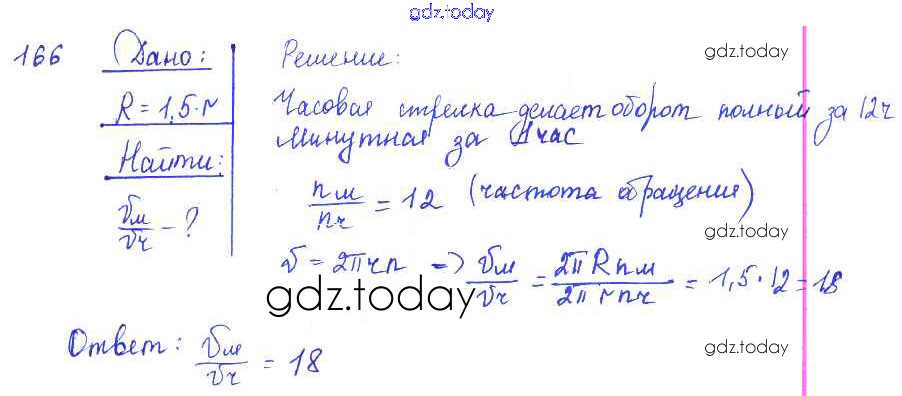 gdz.today
166 Дано: Решение:
gdz.today
R = 1,5·r Часовая стрелка делает оборот полный за 12ч
Минутная за 1 час
Найти:
nм/nч = 12 (частота обращения)
vм/vч - ?
gdz.today
v = 2πrn => vм/vч = 2πRnм/2πrnч = 1,5·12 = 18
gdz.today
Ответ: vм/vч = 18
gdz.today